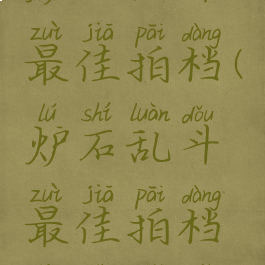 zuì jiā pāi dàng
最佳拍档(
lú shí luàn dǒu
炉石乱斗
zuì jiā pāi dàng
最佳拍档